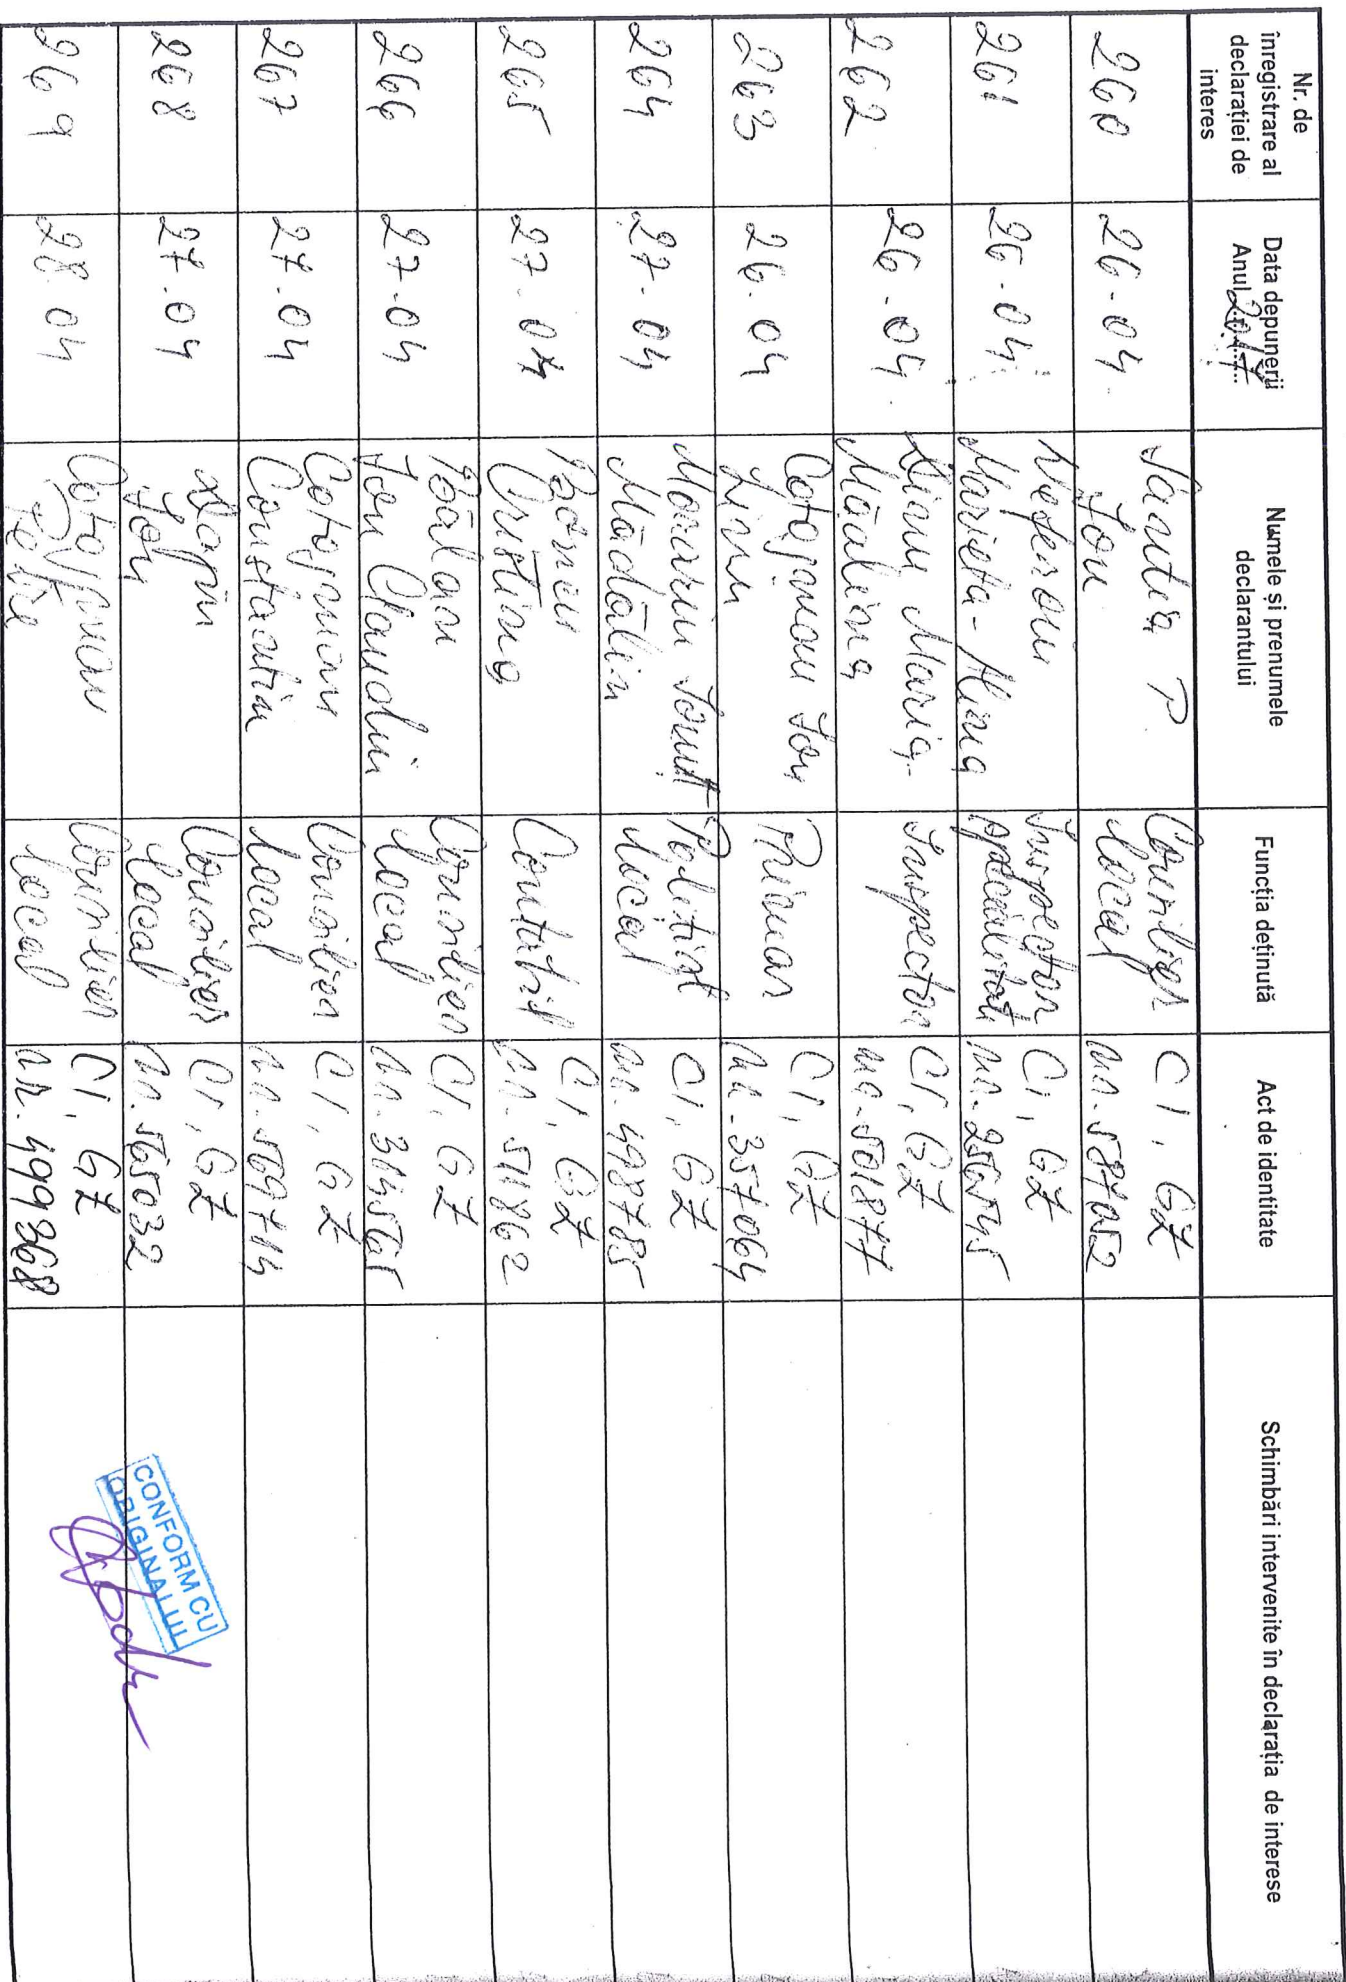 Nr. de
înregistrare al
declarației de
interes
Data depunerii
Anul 2017
Numele și prenumele
declarantului
Funcția deținută
Act de identitate
Schimbări intervenite în declarația de interese
260
26.04.
P
Ion
Consilier
local
CI, GZ
nr. 587052
261
26.04.
Marieta-Mina
Inspector
specialitate
CI, GZ
nr. 256545
262
26.04.
Dinu Maria-
Mădălina
Inspector
CI, GZ
nr. 501877
263
26.04
Cotojman Ion
Linu
Primar
CI, GZ
nr. 357064
264
27.04
Ionuț
Mădălin
Polițist
local
CI, GZ
nr. 498785
265
27.04
Cristina
Contabil
CI, GZ
nr. 511862
266
27.04
Bălan
Ion Claudiu
Consilier
local
CI, GZ
nr. 314565
267
27.04
Cotojman
Constantin
Consilier
local
CI, GZ
nr. 569714
268
27.04
Ion
Consilier
local
CI, GZ
nr. 565032
269
28.04
Cotojman
Petre
Consilier
local
CI, GZ
nr. 499368
CONFORM CU
ORIGINALUL